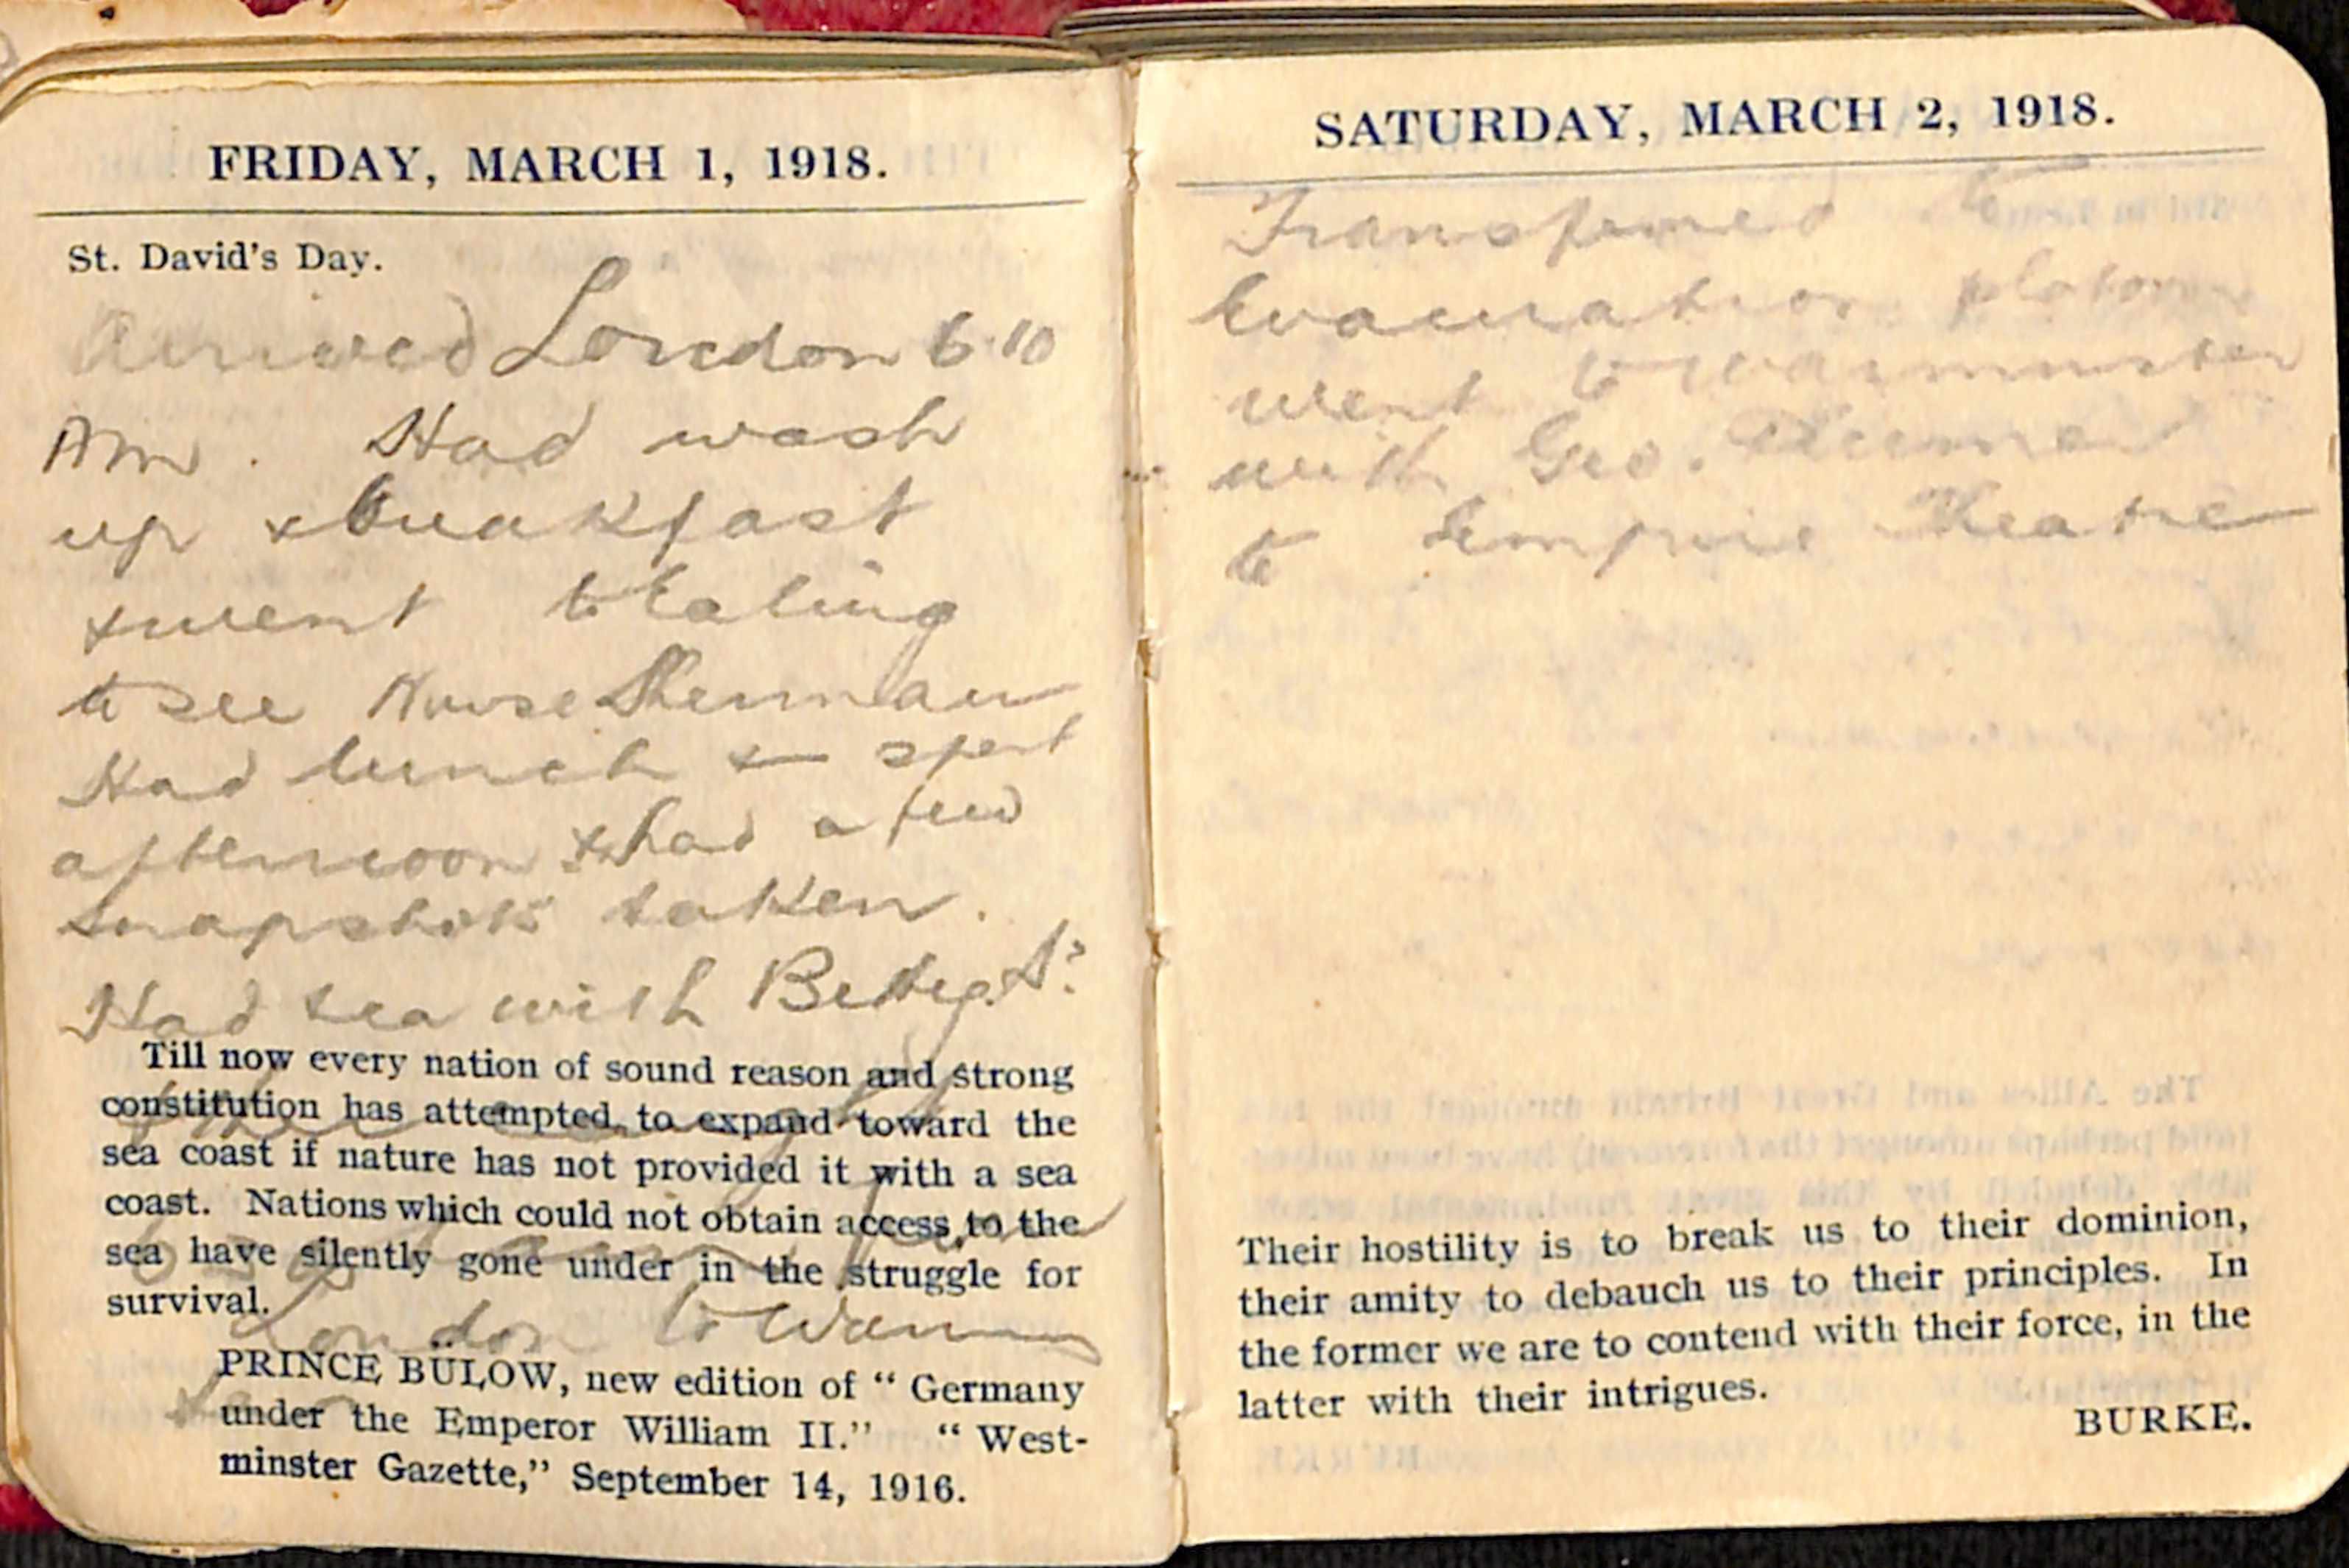 FRIDAY, MARCH 1, 1918.
St. David's Day.
Arrived London 6.10
AM. Had wash
up & breakfast
& went to Ealing
to see Nurse Sherman
Had lunch & spent
afternoon & had a few
snapshots taken.
Had tea with
Till now every nation of sound reason and strong
constitution has attempted to expand toward the
sea coast if nature has not provided it with a sea
coast. Nations which could not obtain access to the
sea have silently gone under in the struggle for
survival.
London to Warmin
ster
PRINCE BÜLOW, new edition of “ Germany
under the Emperor William II.” “ West-
minster Gazette,” September 14, 1916.
SATURDAY, MARCH 2, 1918.
Transferred to
Evacuation platoon
went to Warminster
with Geo.
to Empire Theatre
Their hostility is to break us to their dominion,
their amity to debauch us to their principles. In
the former we are to contend with their force, in the
latter with their intrigues.
BURKE.